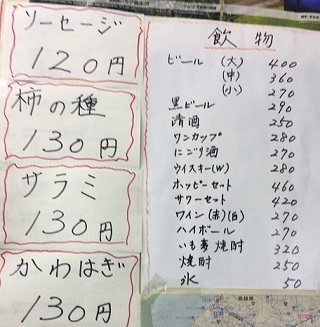 ソーセージ
120円
柿の種
130円
サラミ
130円
かわはぎ
130円
飲物
ビール (大) 400
(中) 360
(小) 270
黒ビール 290
清酒 250
ワンカップ 280
にごり酒 270
ウイスキー(W) 280
ホッピーセット 460
サワーセット 420
ワイン(赤)(白) 270
ハイボール 270
いも麦焼酎 320
焼酎 250
氷 50